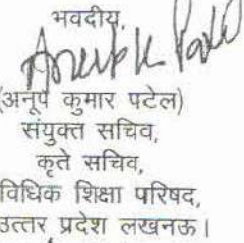 भवदीय,
(अनूप कुमार पटेल)
संयुक्त सचिव,
कृते सचिव,
विधिक शिक्षा परिषद,
उत्तर प्रदेश लखनऊ।